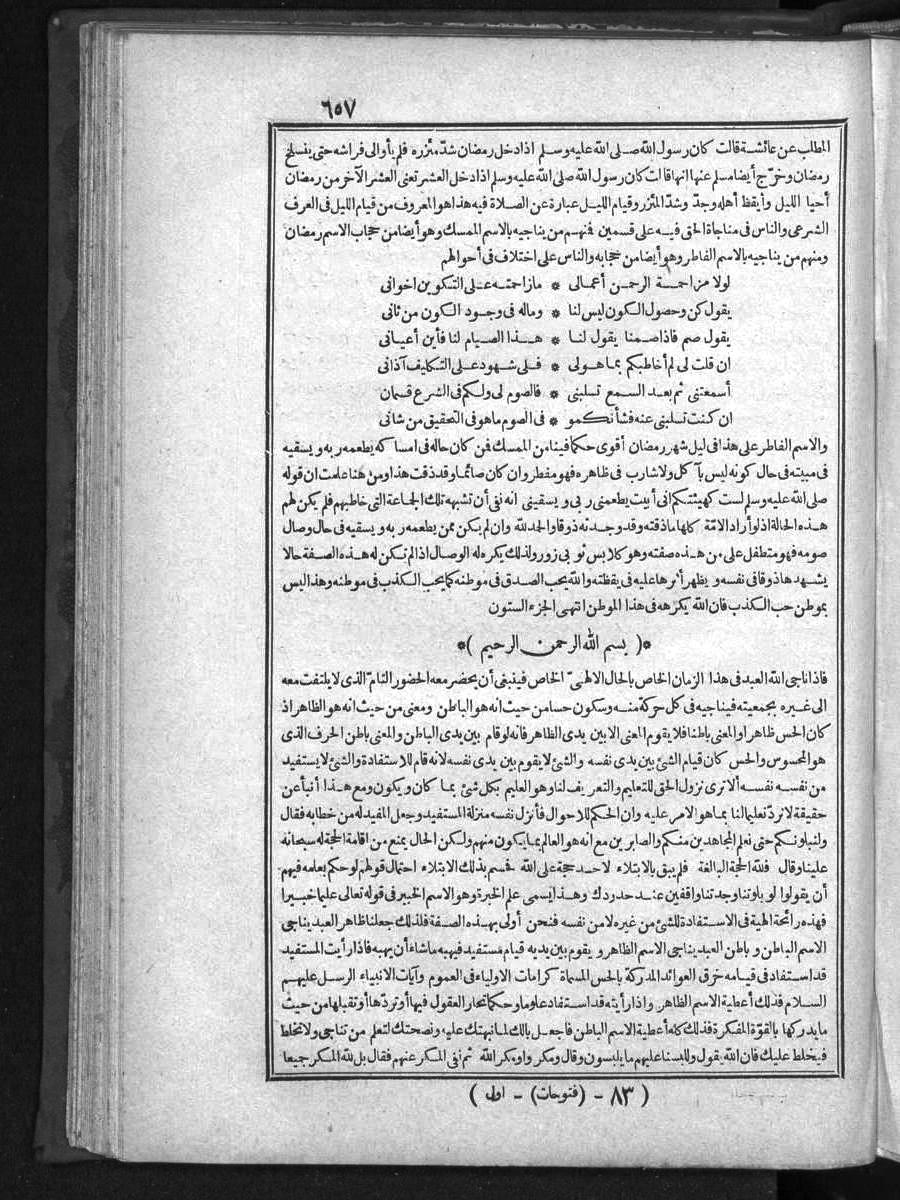 ٦٥٧
المطلب عن عائشة قالت كان رسول الله صلى الله عليه وسلم اذا دخل رمضان شدّ مئزره فلم يأوالى فراشه حتى ينسلخ
رمضان وخرّج أيضا مسلم عنها انها قالت كان رسول الله صلى الله عليه وسلم اذا دخل العشر تعنى العشر الآخر من رمضان
أحيا الليل وأيقظ أهله وجدّ وشدّ المئزر وقيام الليل عبارة عن الصلاة فيه هذا هو المعروف من قيام الليل فى العرف
الشرعى والناس فى مناجاة الحق فيه على قسمين فمنهم من يناجيه بالاسم الممسك وهو أيضا من حجاب الاسم رمضان
ومنهم من يناجيه بالاسم الفاطر وهو أيضا من حجابه والناس على اختلاف فى أحوالهم
لولا مزاحمة الرحمن أعمالى * مازاحمته على التكوين اخوانى
يقول كن وحصول الكون ليس لنا * وماله فى وجود الكون من ثانى
يقول صم فاذا صمنا يقول لنا * هذا الصيام لنا فأين أعيانى
ان قلت لى لم أخاطبكم بما هولى * فلى شهود على التكليف آذانى
أسمعتنى ثم بعد السمع تسلبنى * فالصوم لى ولكم فى الشرع قسمان
ان كنت تسلبنى عنه فشأنكمو * فى الصوم ماهو فى التحقيق من شانى
والاسم الفاطر على هذا فى ليل شهر رمضان أقوى حكما فينا من الممسك فمن كان حاله فى امساكه يطعمه ربه ويسقيه
فى مبيته فى حال كونه ليس بآكل ولا شارب فى ظاهره فهو مفطر وان كان صائما وقد ذقت هذا ومن هنا علمت ان قوله
صلى الله عليه وسلم لست كهيئتكم انى أبيت يطعمنى ربى ويسقينى انه نفى أن تشبهه تلك الجماعة التى خاطبهم فلم يكن لهم
هذه الحالة اذ لو أراد الامّة كلها ماذقته وقد وجدته ذوقا والحد لله وان لم يكن ممن يطعمه ربه ويسقيه فى حال وصال
صومه فهو متطفل على من هذه صفته وهو كلابس ثوبى زور ولذلك يكره له الوصال اذا لم تكن له هذه الصفة حالا
يشهدها ذوقا فى نفسه ويظهر أثرها عليه فى يقظته والله يحب الصدق فى موطنه كما يحب الكذب فى موطنه وهذا ليس
بموطن حب الكذب فان الله يكرهه فى هذا الموطن انتهى الجزء الستون
*( بسم الله الرحمن الرحيم )*
فاذا ناجى الله العبد فى هذا الزمان الخاص بالحال الالهىّ الخاص فينبغى أن يحضر معه الحضور التامّ الذى لا يلتفت معه
الى غيره بجمعيته فيناجيه فى كل حركة منه وسكون حسا من حيث انه هو الباطن ومعنى من حيث انه هو الظاهر اذ
كان الحس ظاهرا والمعنى باطنا فلا يقوم المعنى الابين يدى الظاهر فانه لو قام بين يدى الباطن والمعنى باطن الحرف الذى
هو المحسوس والحس كان قيام الشئ بين يدى نفسه والشئ لا يقوم بين يدى نفسه لانه قام للاستفادة والشئ لا يستفيد
من نفسه نفسه ألا ترى نزول الحق للتعليم والتعريف لنا وهو العليم بكل شئ بما كان ويكون ومع هذا أنبأ عن
حقيقة لا تردّ تعليما لنا بما هو الامر عليه وان الحكم للاحوال فأنزل نفسه منزلة المستفيد وجعل المفيد له من خطابه فقال
ولنبلونكم حتى نعلم المجاهدين منكم والصابرين مع انه هو العالم بما يكون منهم ولكن الحال يمنع من اقامة الحجة له سبحانه
علينا وقال فلله الحجة البالغة فلم يبق بالابتلاء لاحد حجة على الله فحسم بذلك الابتلاء احتمال قولهم لو حكم بعلمه فيهم
أن يقولوا لو بلوتنا وجدتنا واقفين عند حدودك وهذا يسمى علم الخبرة وهو الاسم الخبير فى قوله تعالى عليما خبيرا
فهذه رائحة الهية فى الاستفادة للشئ من غيره لا من نفسه فنحن أولى بهذه الصفة فلذلك جعلنا ظاهر العبد يناجى
الاسم الباطن وباطن العبد يناجى الاسم الظاهر ويقوم بين يديه قيام مستفيد فيهبه ماشاء أن يهبه فاذا رأيت المستفيد
قد استفاد فى قيامه خرق العوائد المدركة بالحس المسماة كرامات الاولياء فى العموم وآيات الانبياء الرسل عليهم
السلام فذلك أعطية الاسم الظاهر واذا رأيته قد استفاد علوما وحكما تحار العقول فيها أو تردّها أو تقبلها من حيث
ما يدركها بالقوّة المفكرة فذلك كله أعطية الاسم الباطن فاجعل بالك لما نبهتك عليه ونصحتك لتعلم من تناجى ولا تخلط
فيخلط عليك فان الله يقول وللبسنا عليهم ما يلبسون وقال ومكروا ومكر الله ثم نفى المكر عنهم فقال بل لله المكر جميعا
( ٨٣ - (فتوحات) - اول )